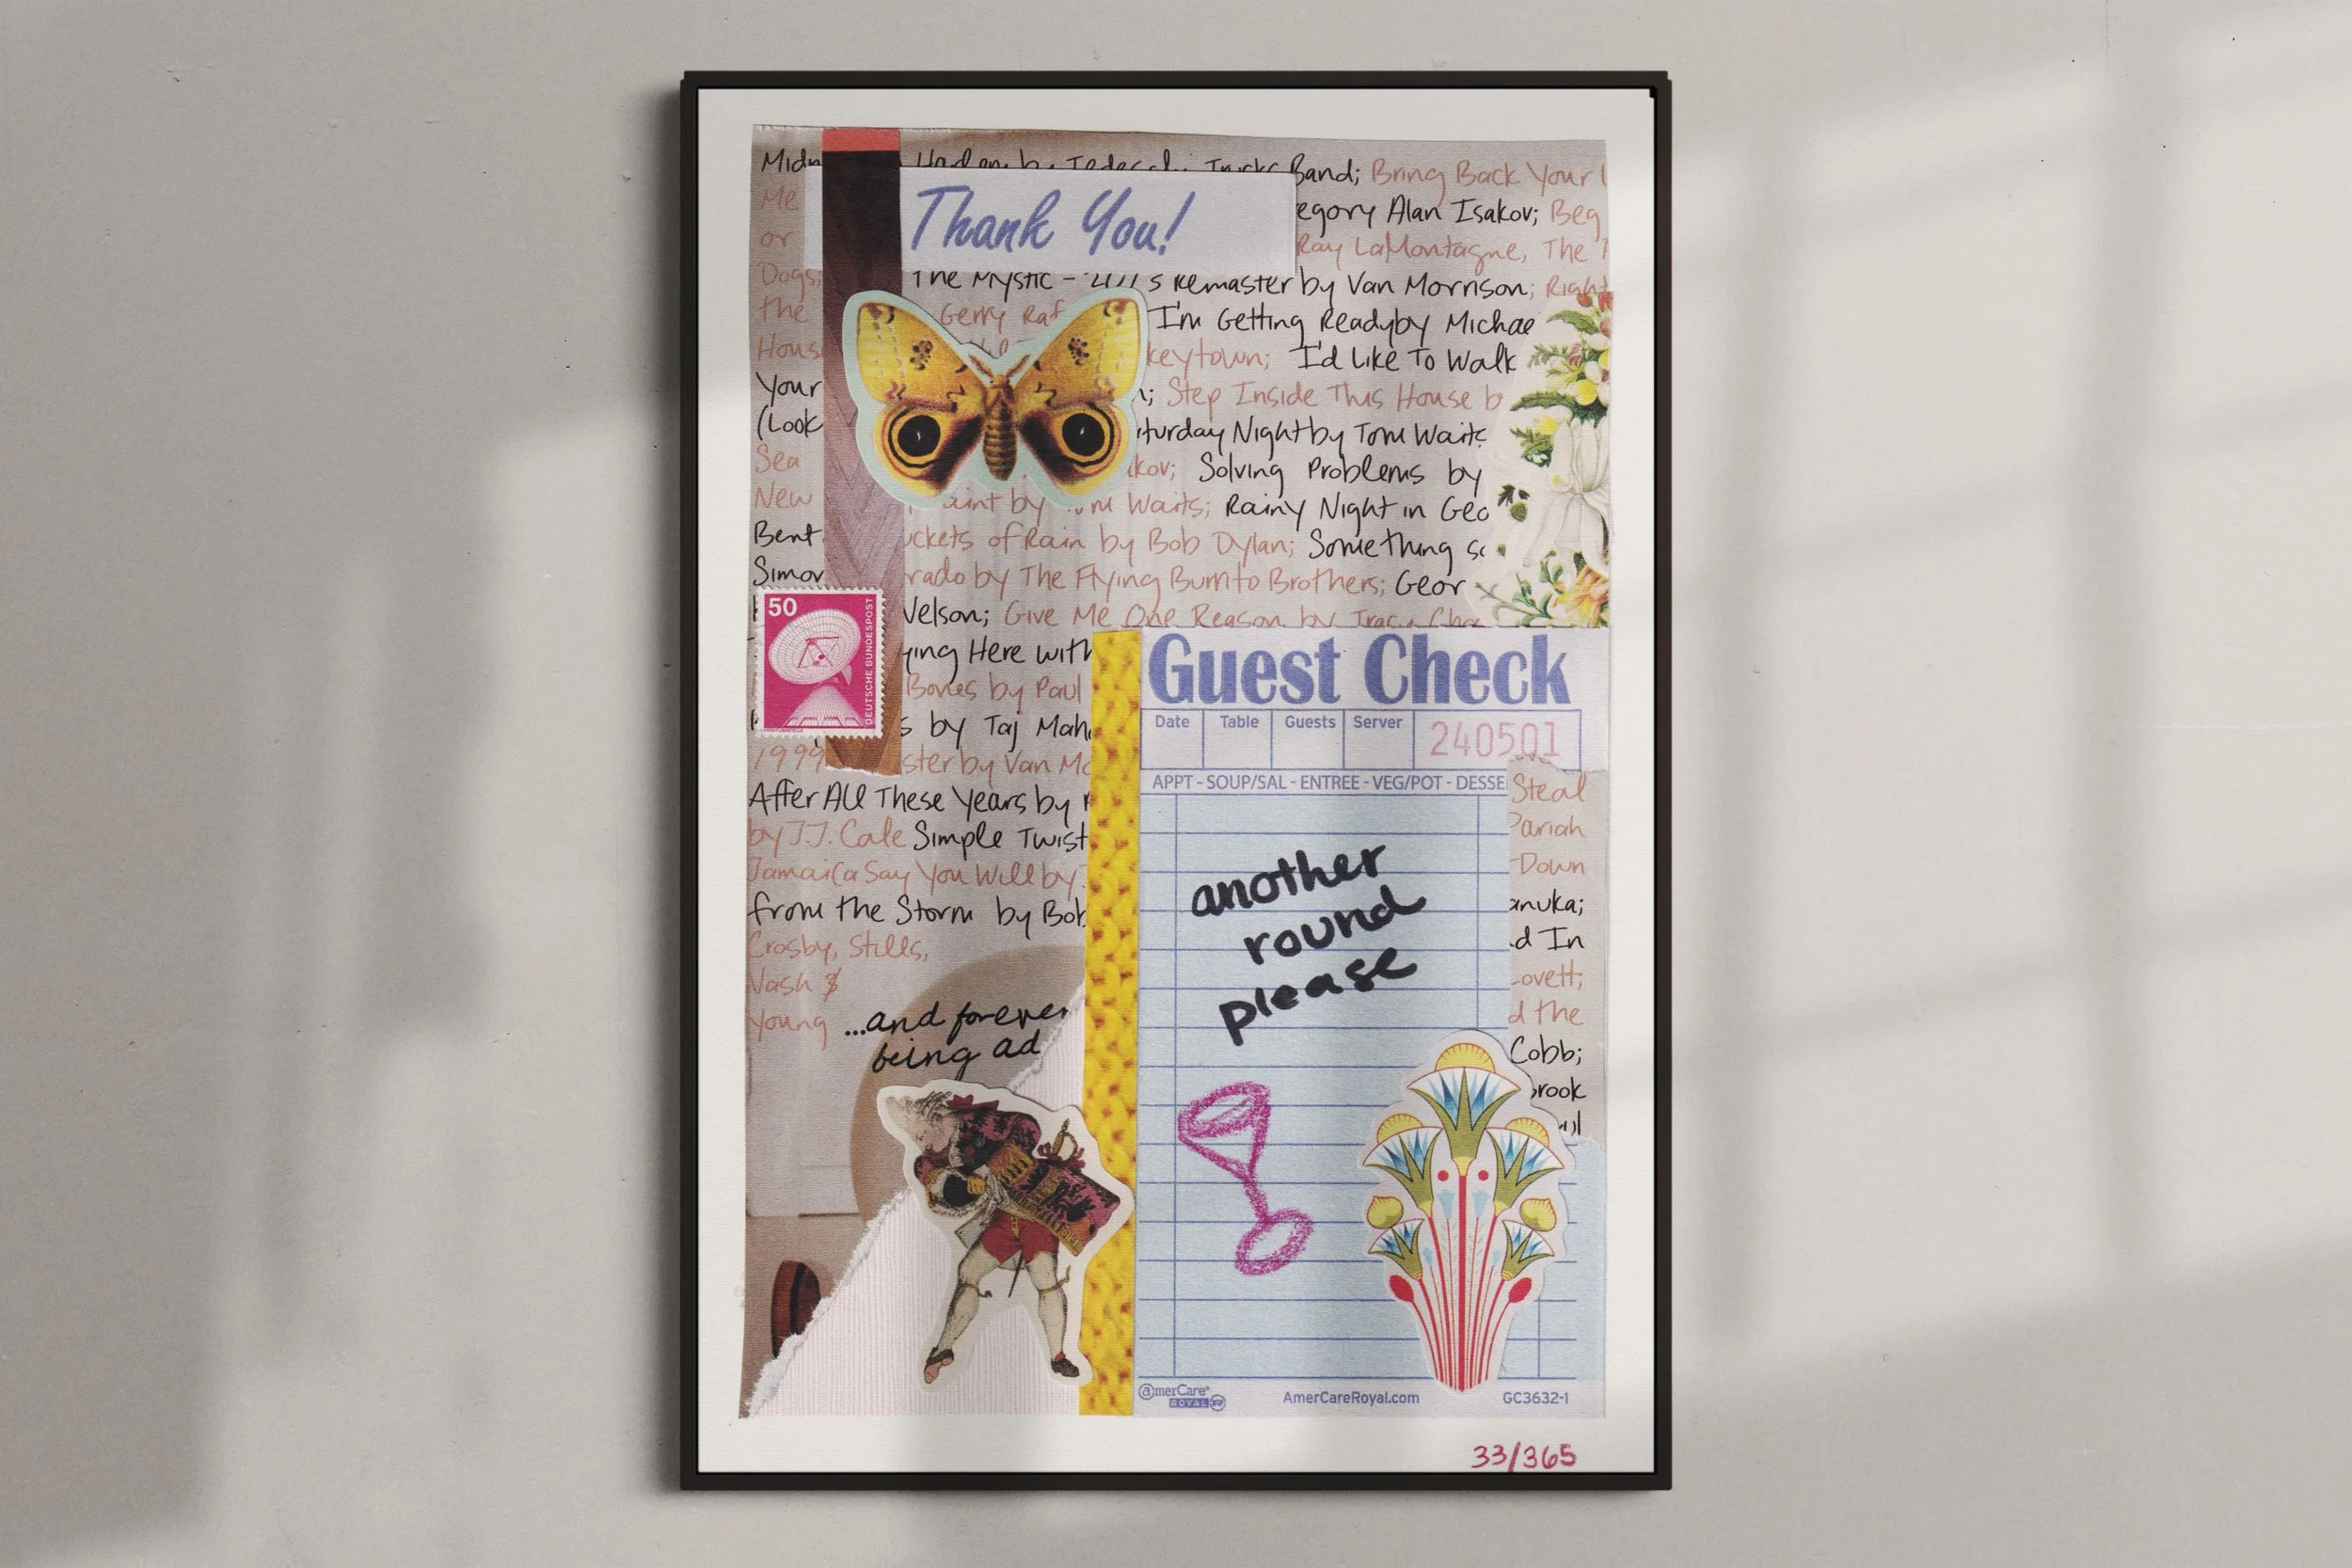 Midn Harlem by Tedeschi Trucks Band; Bring Back Your
Thank You!
Me egory Alan Isakov; Beg
or Ray LaMontagne, The
Dogs; The Mystic - Remaster by Van Morrison; Right
the Gerry Raf I'm Getting Readyby Michae
House keytown; I'd Like To Walk
Your Step Inside This House b
(Look aturday Night by Tom Waits
Sea kov; Solving Problems by
New aint by Tom Waits; Rainy Night in Geo
Bent uckets of Rain by Bob Dylan; Something so
Simon rado by The Flying Burrito Brothers; Geor
50
DEUTSCHE BUNDESPOST
Nelson; Give Me One Reason by Tracy Cha
ying Here with
Bones by Paul
s by Taj Mah
1999 ster by Van Mo
After All These Years by
by J.J. Cale Simple Twist
Jamaica Say You Will by
from the Storm by Bob
Crosby, Stills,
Nash &
Young
...and forever
being ad
Guest Check
Date Table Guests Server 240501
APPT - SOUP/SAL - ENTREE - VEG/POT - DESSE
another
round
please
Steal
Pariah
Down
anuka;
d In
Lovett;
d the
Cobb;
brook
amerCare®
ROYAL
AmerCareRoyal.com
GC3632-1
33/365